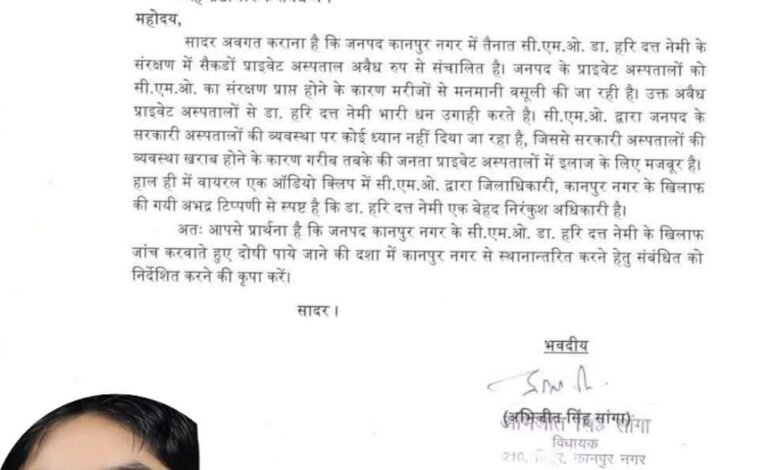 महोदय,
सादर अवगत कराना है कि जनपद कानपुर नगर में तैनात सी.एम.ओ. डा. हरि दत्त नेमी के
संरक्षण में सैकडों प्राइवेट अस्पताल अवैध रुप से संचालित है। जनपद के प्राइवेट अस्पतालों को
सी.एम.ओ. का संरक्षण प्राप्त होने के कारण मरीजों से मनमानी वसूली की जा रही है। उक्त अवैध
प्राइवेट अस्पतालों से डा. हरि दत्त नेमी भारी धन उगाही करते है। सी.एम.ओ. द्वारा जनपद के
सरकारी अस्पतालों की व्यवस्था पर कोई ध्यान नहीं दिया जा रहा है, जिससे सरकारी अस्पतालों की
व्यवस्था खराब होने के कारण गरीब तबके की जनता प्राइवेट अस्पतालों में इलाज के लिए मजबूर है।
हाल ही में वायरल एक ऑडियो क्लिप में सी.एम.ओ. द्वारा जिलाधिकारी, कानपुर नगर के खिलाफ
की गयी अभद्र टिप्पणी से स्पष्ट है कि डा. हरि दत्त नेमी एक बेहद निरंकुश अधिकारी है।
अतः आपसे प्रार्थना है कि जनपद कानपुर नगर के सी.एम.ओ. डा. हरि दत्त नेमी के खिलाफ
जांच करवाते हुए दोषी पाये जाने की दशा में कानपुर नगर से स्थानान्तरित करने हेतु संबंधित को
निर्देशित करने की कृपा करें।
सादर ।
भवदीय
(अभिजीत सिंह सांगा)
अभिजीत सिंह सांगा
विधायक
210, कानपुर नगर